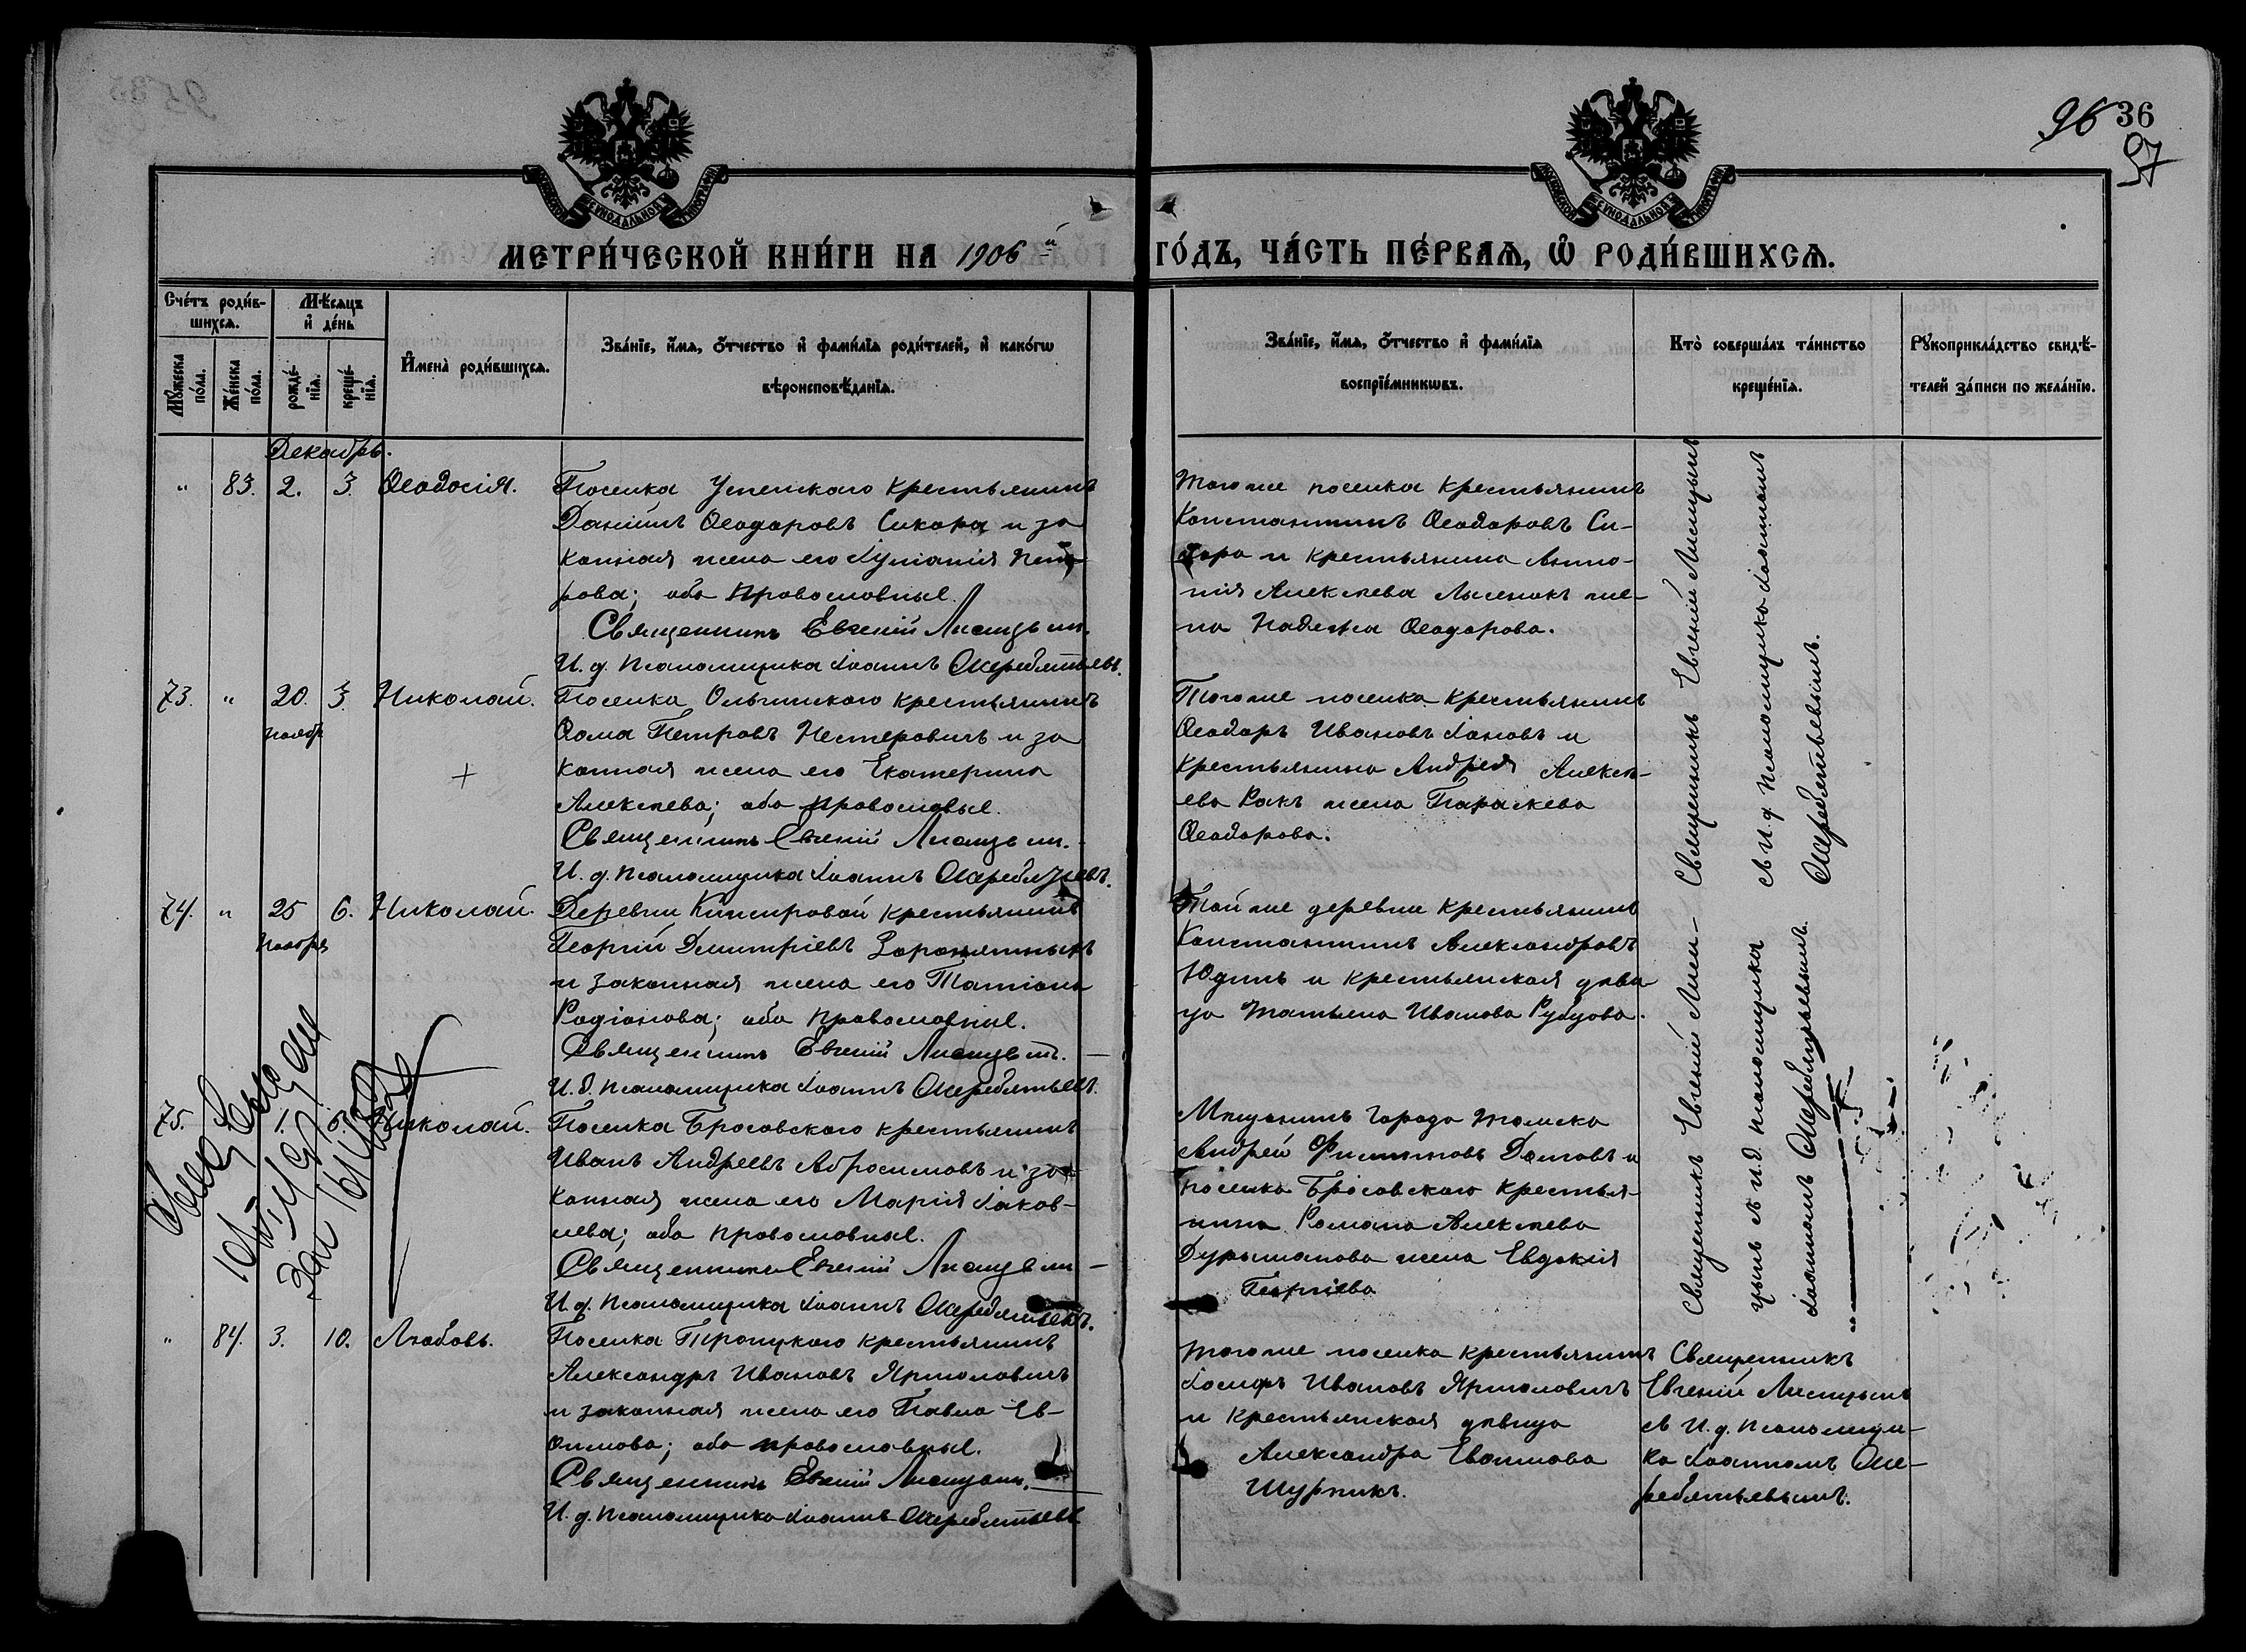 96 36
97
МЕТРИ́ЧЕСКОЙ КНИ́ГИ НА 1906й ГО́ДЪ, ЧА́СТЬ ПЕ́РВАѦ, Ѡ҆ РОДИ́ВШИХСѦ.
Сче́тъ роди́в-
шихсѧ.
Мѣ́сяцъ
и҆ де́нь
Мꙋ́жеска
по́ла.
Же́нска
по́ла.
рожде́-
нїѧ.
креще́-
нїѧ.
И҆мена̀ роди́вшихсѧ.
Зва́нїе, и҆́мѧ, ѻ҆́тчество и҆ фами́лїѧ роди́телей, и҆ како́гѡ
вѣроисповѣ́данїѧ.
Зва́нїе, и҆́мѧ, ѻ҆́тчество и҆ фами́лїѧ
воспрїе́мникѡвъ.
Кто̀ соверша́лъ та́инство
креще́нїѧ.
Рꙋкоприкла́дство свидѣ́-
телей за́писи по жела́нїю.
Декабрь.
" 83. 2. 3. Ѳеодосія.
Поселка Успенскаго крестьянинъ
Даніилъ Ѳеодоровъ Сикора и за
конная жена его Іуліанія Пет-
рова; оба православные.
Священникъ Евгеній Лисицынъ.
И. д. псаломщика Іоаннъ Жеребятьевъ.
Того же поселка крестьянинъ
Константинъ Ѳеодоровъ Си-
кора и крестьянина Анто-
нія Алексѣева Лысенокъ же-
на Надежда Ѳеодорова.
Священникъ Евгеній Лисицынъ
съ И. д. псаломщика Іоанномъ
Жеребятьевымъ.
73. " 20. 3. Николай.
Ноябр
Поселка Ольгинскаго крестьянинъ
Ѳома Петровъ Нестеровичъ и за
конная жена его Екатерина
Алексѣева; оба православные.
Священникъ Евгеній Лисицынъ.
И. д. псаломщика Іоаннъ Жеребятьевъ.
Того же поселка крестьянинъ
Ѳеодоръ Ивановъ Іановъ и
крестьянина Андрея Алексѣ-
ева Ракъ жена Параскева
Ѳеодорова.
74. " 25 6. Николай.
Ноября
Деревни Кипировой крестьянинъ
Георгій Димитріевъ
и законная жена его Татіана
Родіонова; оба православные.
Священникъ Евгеній Лисицынъ.
И. д. псаломщика Іоаннъ Жеребятьевъ.
Той же деревни крестьянинъ
Константинъ Александровъ
Юдинъ и крестьянская дѣви-
ца Татьяна Иванова Рубцова.
Священникъ Евгеній Лиси-
цынъ съ И. д. псаломщика
Іоанномъ Жеребятьевымъ.
75. 1. 6. Николай.
Поселка Бросовскаго крестьянинъ
Иванъ Андреевъ Абросимовъ и за-
конная жена его Марія Іаков-
лева; оба православные.
Священникъ Евгеній Лисицынъ
И. д. псаломщика Іоаннъ Жеребятьевъ.
Мѣщанинъ города Томска
Андрей Филипповъ Долговъ и
поселка Бросовскаго крестья-
нина Романа Алексѣева
Дурыманова жена Евдокія
Георгіева
" 84. 3. 10. Любовь.
Поселка Троицкаго крестьянинъ
Александръ Ивановъ Ярмоловичъ
и законная жена его Павла Ев-
ѳимова; оба православные.
Священникъ Евгеній Лисицынъ.
И. д. псаломщика Іоаннъ Жеребятьевъ
Того же поселка крестьянинъ
Іосифъ Ивановъ Ярмоловичъ
и крестьянская дѣвица
Александра Евѳимова
Шурпикъ.
Священникъ
Евгеній Лисицынъ
съ И. д. псаломщи-
ка Іоанномъ Же-
ребятьевымъ.